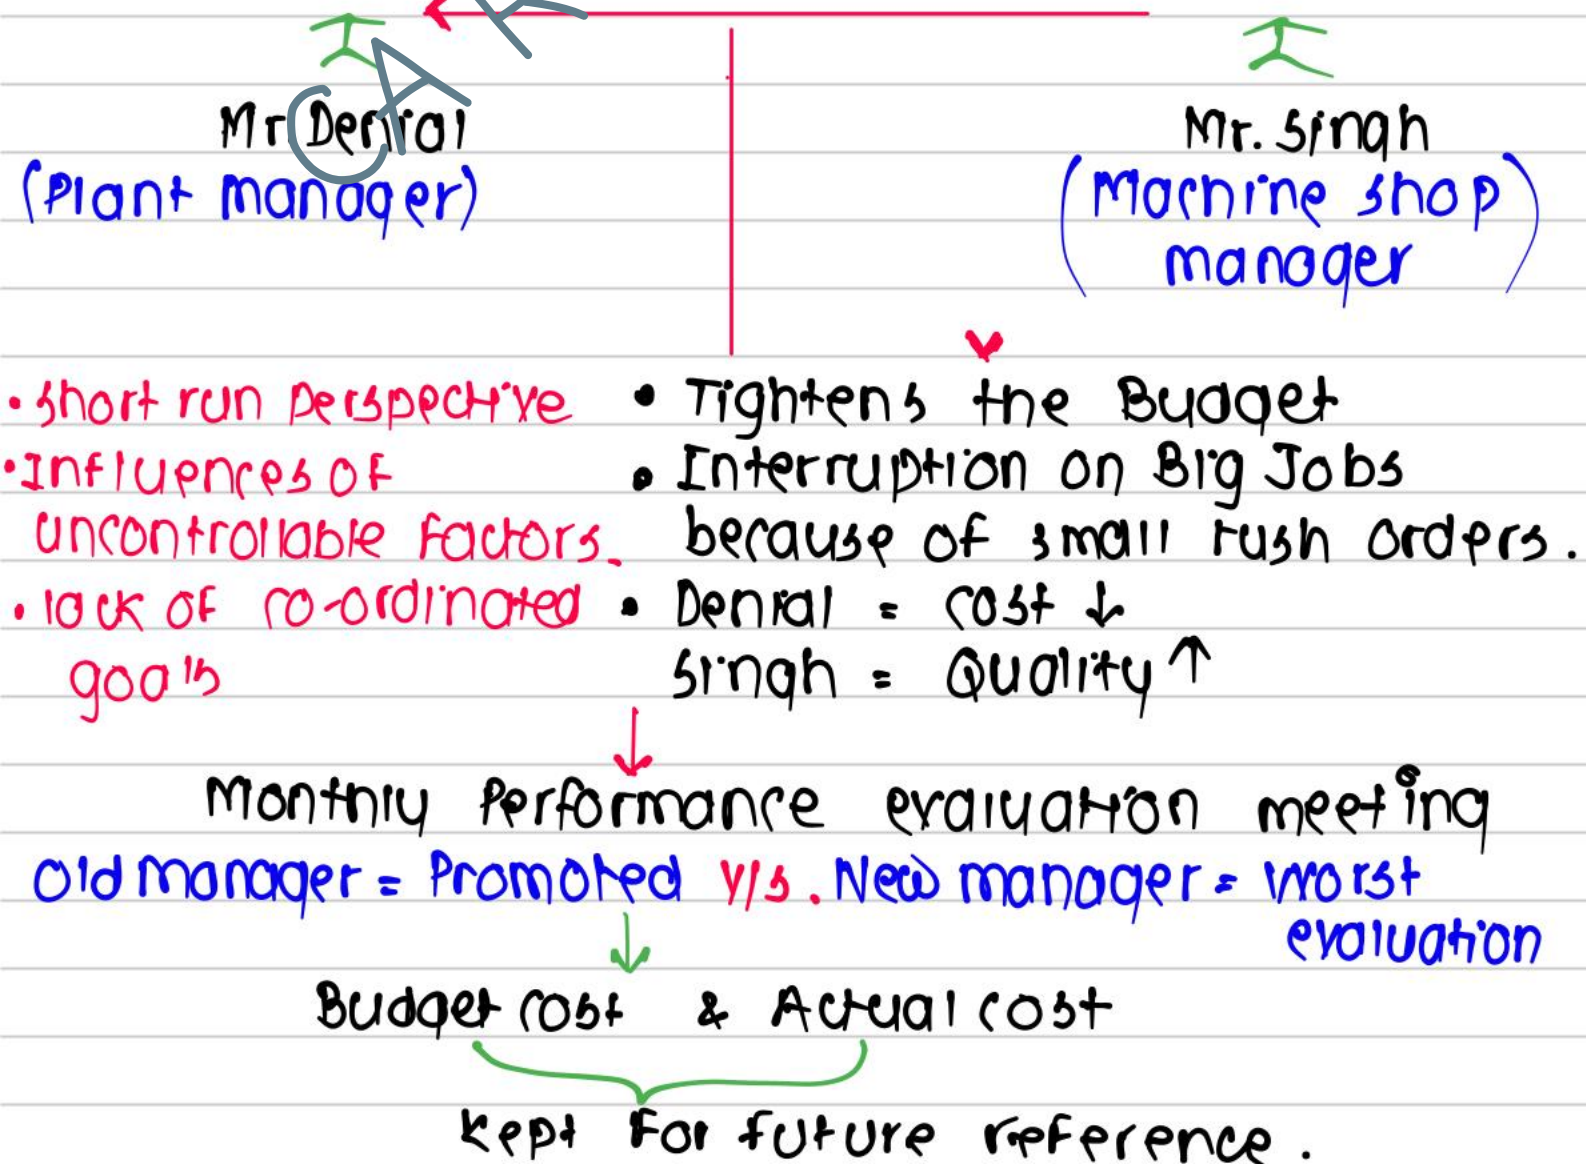 CA
Mr Denial
Mr. Singh
(Plant manager)
(Machine shop
manager)
• short run Perspective
• Influences of
uncontrollable factors.
• lack of co-ordinated
goals
• Tightens the Budget
• Interruption on Big Jobs
because of small rush orders.
• Denial = cost ↓
Singh = Quality ↑
Monthly Performance evaluation meeting
Old manager = Promoted V/s. New manager = worst
evaluation
Budget cost & Actual cost
Kept for future reference.